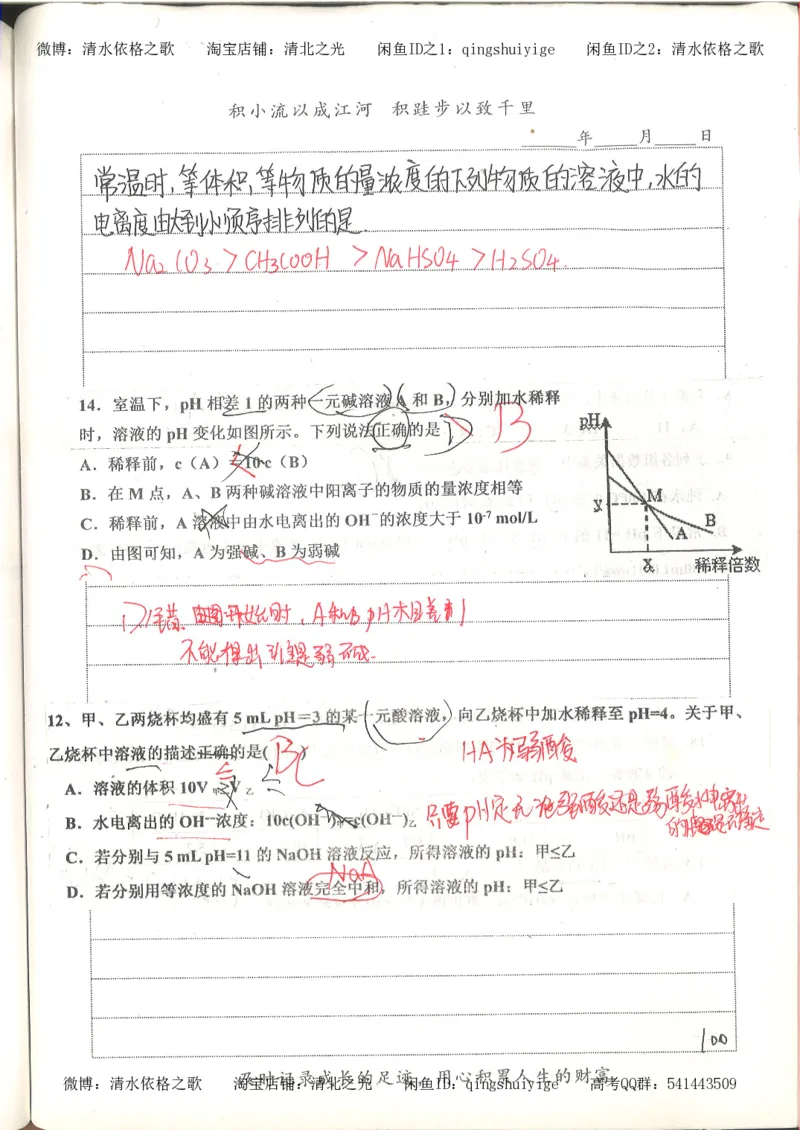 微博：清水依格之歌 淘宝店铺：清北之光 闲鱼ID之1：qingshuiyige 闲鱼ID之2：清水依格之歌
积小流以成江河 积跬步以致千里
年 月 日
常温时,等体积,等物质的量浓度的下列物质的溶液中,水的
电离度由大到小顺序排列的是.
Na₂CO₃ > CH₃COOH > NaHSO₄ > H₂SO₄.
14．室温下，pH 相差 1 的两种一元碱溶液 A 和 B，分别加水稀释
时，溶液的 pH 变化如图所示。下列说法正确的是
B
A．稀释前，c（A）＝10 c（B）
B．在 M 点，A、B 两种碱溶液中阳离子的物质的量浓度相等
C．稀释前，A 溶液中由水电离出的 OH⁻的浓度大于 10⁻⁷ mol/L
D．由图可知，A 为强碱、B 为弱碱
pH
y
M
B
A
x
稀释倍数
D错. 由图开始时，A和B pH相差1
不能推出强弱碱.
12、甲、乙两烧杯均盛有 5 mL pH＝3 的某一元酸溶液，向乙烧杯中加水稀释至 pH=4。关于甲、
乙烧杯中溶液的描述正确的是( BC )
HA为弱酸
A．溶液的体积 10V甲≤V乙
B．水电离出的 OH⁻浓度：10c(OH⁻)甲≤c(OH⁻)乙
只要pH定无论强酸还是弱酸水电离出
C．若分别与 5 mL pH=11 的 NaOH 溶液反应，所得溶液的 pH：甲≤乙
NaA
D．若分别用等浓度的 NaOH 溶液完全中和，所得溶液的 pH：甲≤乙
100
及时记录成长的足迹 用心积累人生的财富
微博：清水依格之歌 淘宝店铺：清北之光 闲鱼ID：qingshuiyige 高考QQ群：541443509